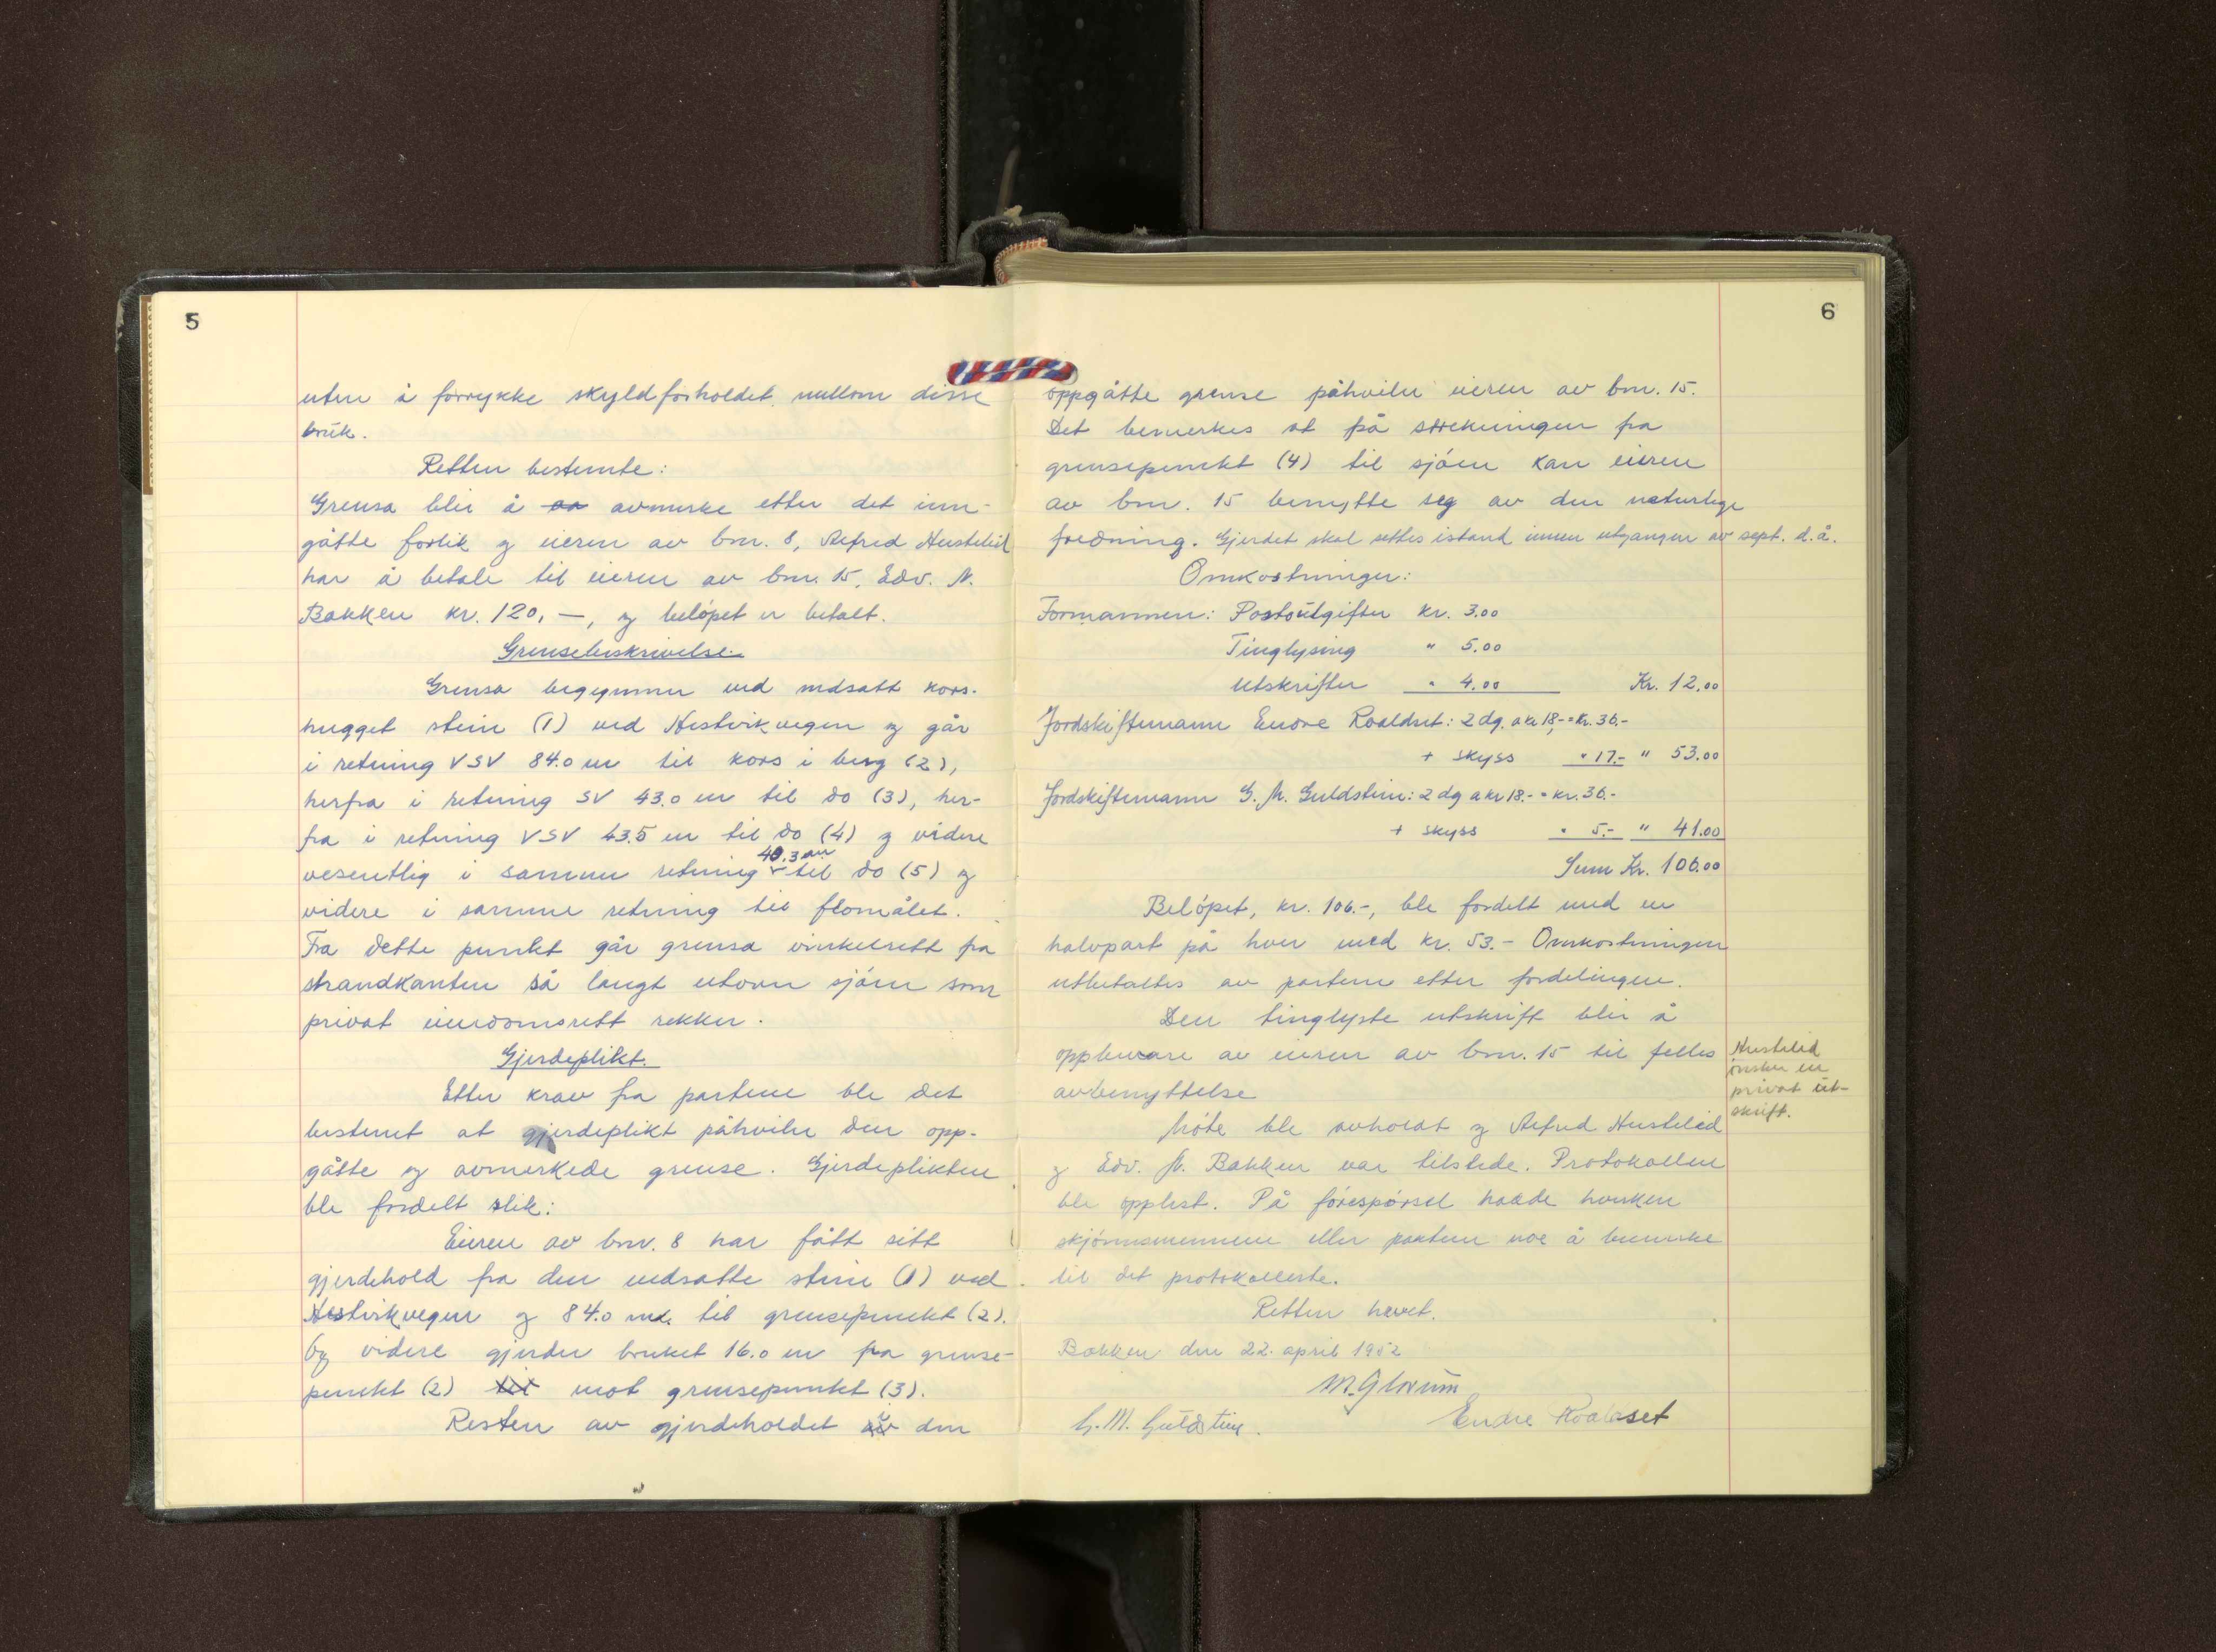 5
uten å forrykke skyldforholdet mellom disse
bruk.
Retten bestemte:
Grensa blir å aa avmerke etter det inn-
gåtte forlik og eieren av bnr. 8, Alfred Hustelid
har å betale til eieren av bnr. 15, Edv. N.
Bakken kr. 120,—, og beløpet er betalt.
Grensebeskrivelse.
Grensa begynner ved nedsatt kors-
hugget stein (1) ved Hestvikvegen og går
i retning VSV 84.0 m til kors i berg (2),
herfra i retning SV 43.0 m til do (3), her-
fra i retning VSV 43.5 m til do (4) og videre
40.3 m
vesentlig i samme retning til do (5) og
videre i samme retning til flomålet.
Fra dette punkt går grensa vinkelrett fra
strandkanten så langt utover sjøen som
privat eiendomsrett rekker.
Gjerdeplikt.
Etter krav fra partene ble det
bestemt at gjerdeplikt påhviler den opp-
gåtte og avmerkede grense. Gjerdeplikten
ble fordelt slik:
Eieren av bnr. 8 har fått sitt
gjerdehold fra den nedsatte stein (1) ved
Hestvikvegen og 84.0 m. til grensepunkt (2).
Og videre gjerder bruket 16.0 m fra grense-
punkt (2) til mot grensepunkt (3).
Resten av gjerdeholdet av den
6
oppgåtte grense påhviler eieren av bnr. 15.
Det bemerkes at på strekningen fra
grensepunkt (4) til sjøen kan eieren
av bnr. 15 benytte seg av den naturlige
fredning. Gjerdet skal settes istand innen utgangen av sept. d.å.
Omkostninger:
Formannen: Postutgifter kr. 3.00
Tinglysing " 5.00
Utskrifter " 4.00 Kr. 12.00
Jordskiftemann Endre Roaldset: 2 dg. a kr 18,- = kr. 36.-
+ skyss " 17.- " 53.00
Jordskiftemann G. M. Guldstein: 2 dg a kr 18.- = kr. 36.-
+ skyss " 5.- " 41.00
Sum Kr. 106.00
Beløpet, kr. 106.-, ble fordelt med en
halvpart på hver med kr. 53.- Omkostningen
utbetaltes av partene etter fordelingen.
Den tinglyste utskrift blir å
oppbevare av eieren av bnr. 15 til felles
avbenyttelse
Hustelid
ønsker en
privat ut-
skrift.
Møte ble avholdt og Alfred Hustelid
og Edv. N. Bakken var tilstede. Protokollen
ble opplest. På forespørsel hadde hverken
skjønnsmennene eller partene noe å bemerke
til det protokollerte.
Retten hevet.
Bakken den 22. april 1952
M. Glærum
G. M. Guldstein. Endre Roaldset